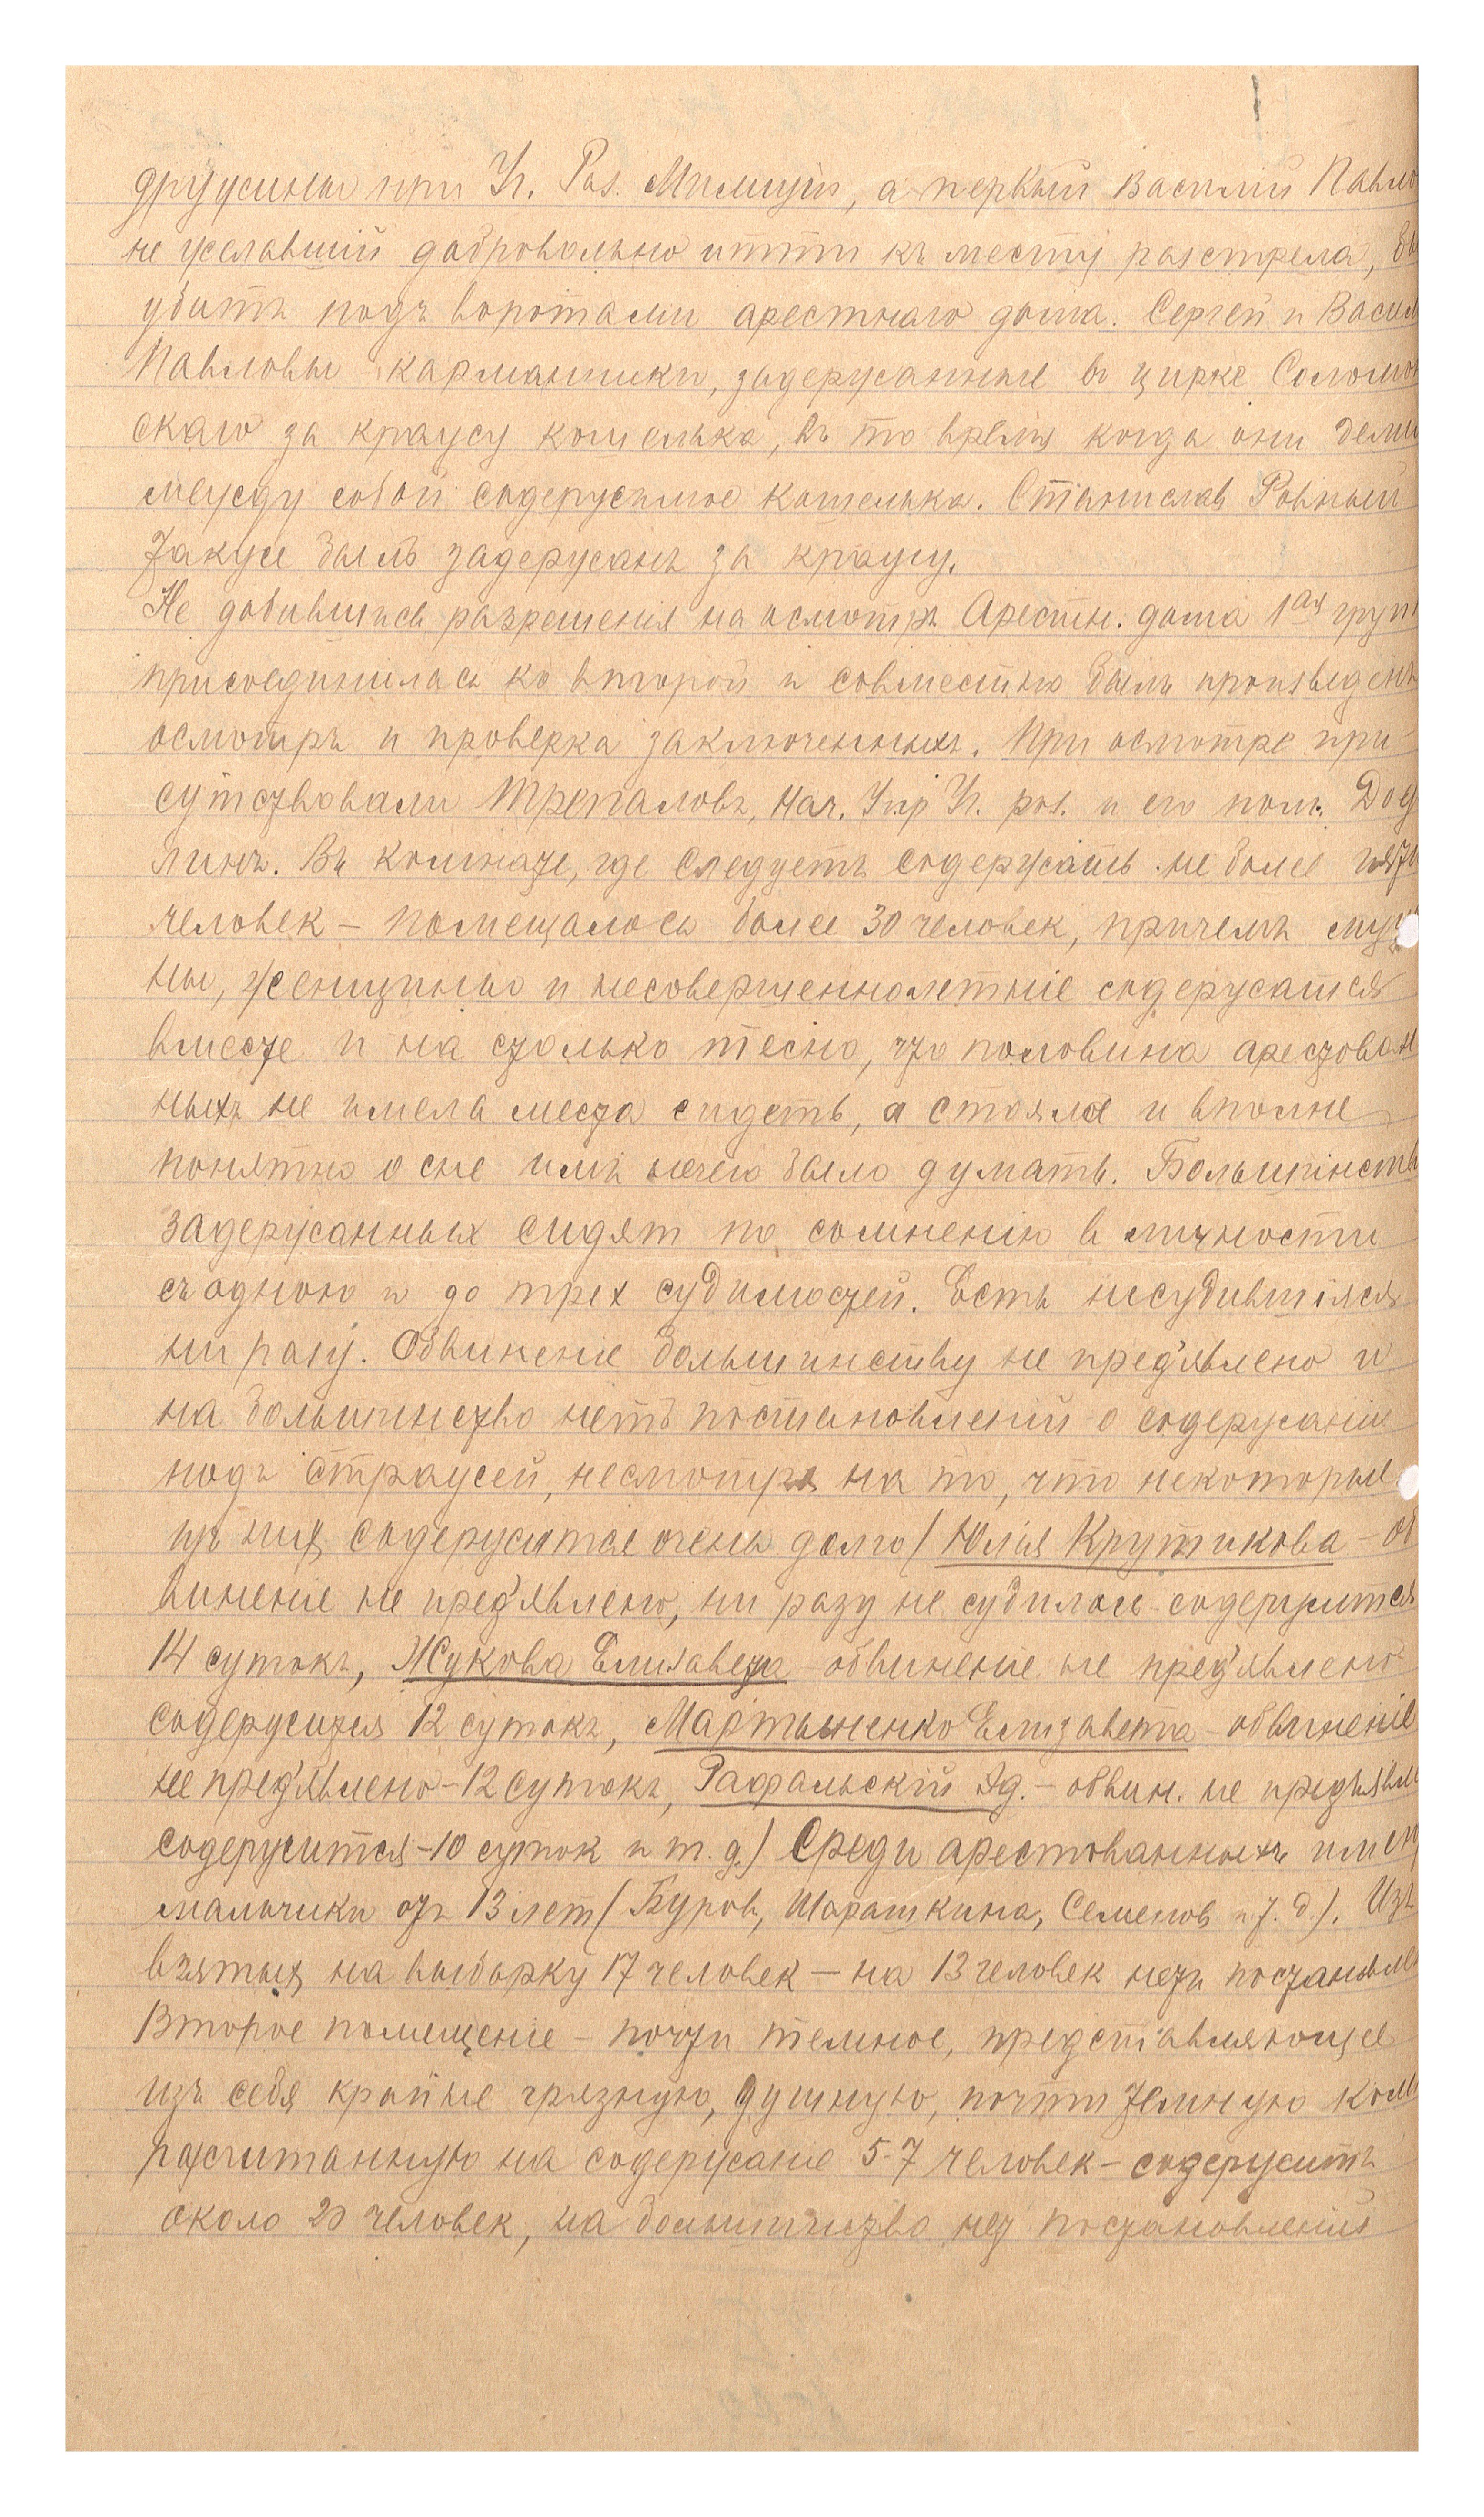 дружины при Уг. Роз. Милиціи, а первый Василій Павло
не желавший добровольно итти къ месту разстрела, бы
убитъ подъ воротами арестнаго дома. Сергей и Васил
Павловы карманники, задержанные въ цирке Соломон
скаго за кражу кошелька, въ то время когда они дели
между собой содержимое кошелька. Станислав Ровный
также былъ задержанъ за кражу.
Не добившись разрешенія на осмотръ Арестн. дома 1ая груп
присоединилась ко второй и совместно былъ произведенъ
осмотръ и проверка заключенныхъ. При осмотре при-
сутствовали Трепаловъ, Нач. Упр Уг. роз. и его пом.
линъ. Въ комнате, где следуетъ содержать не более пяти
человек — помещалось более 30 человек, причемъ муж
ны, женщины и несовершеннолетніе содержатся
вместе и на столько тесно, что половина арестован
ныхъ не имела места сидеть, а стояла и вполне
понятно о сне имъ нечего было думать. Большинств
задержанных сидят по сомненію в личности
съ одною и до трех судимостей. Есть несудившіяся
ни разу. Обвиненіе большинству не пред'явлено и
на большинство нетъ постановлений о содержаніи
подъ стражей, несмотря на то, что некоторые
изъ них содержится очень долго (Юлія Крутикова — об
виненіе не пред'явлено, ни разу не судилась содержится
14 сутокъ, Жукова Елизавета — обвиненіе не пред'явлено
содержится 12 сутокъ, Мартыненко Елизавета — обвиненіе
не пред'явлено — 12 сутокъ, Рафальскій Ад. — обвин. не предъявле
содержится — 10 суток и т. д.) Среди арестованныхъ имею
мальчики отъ 13 лет (Буров, Шарашкина, Семенов и т. д.). Изъ
взятых на выборку 17 человек — на 13 человек нетъ постановле
Второе помещеніе — почти темное, представляющее
изъ себя крайне грязную, душную, почти темную ком
расчитанную на содержаніе 5-7 человек — содержитъ
около 20 человек, на большинство нет постановленій